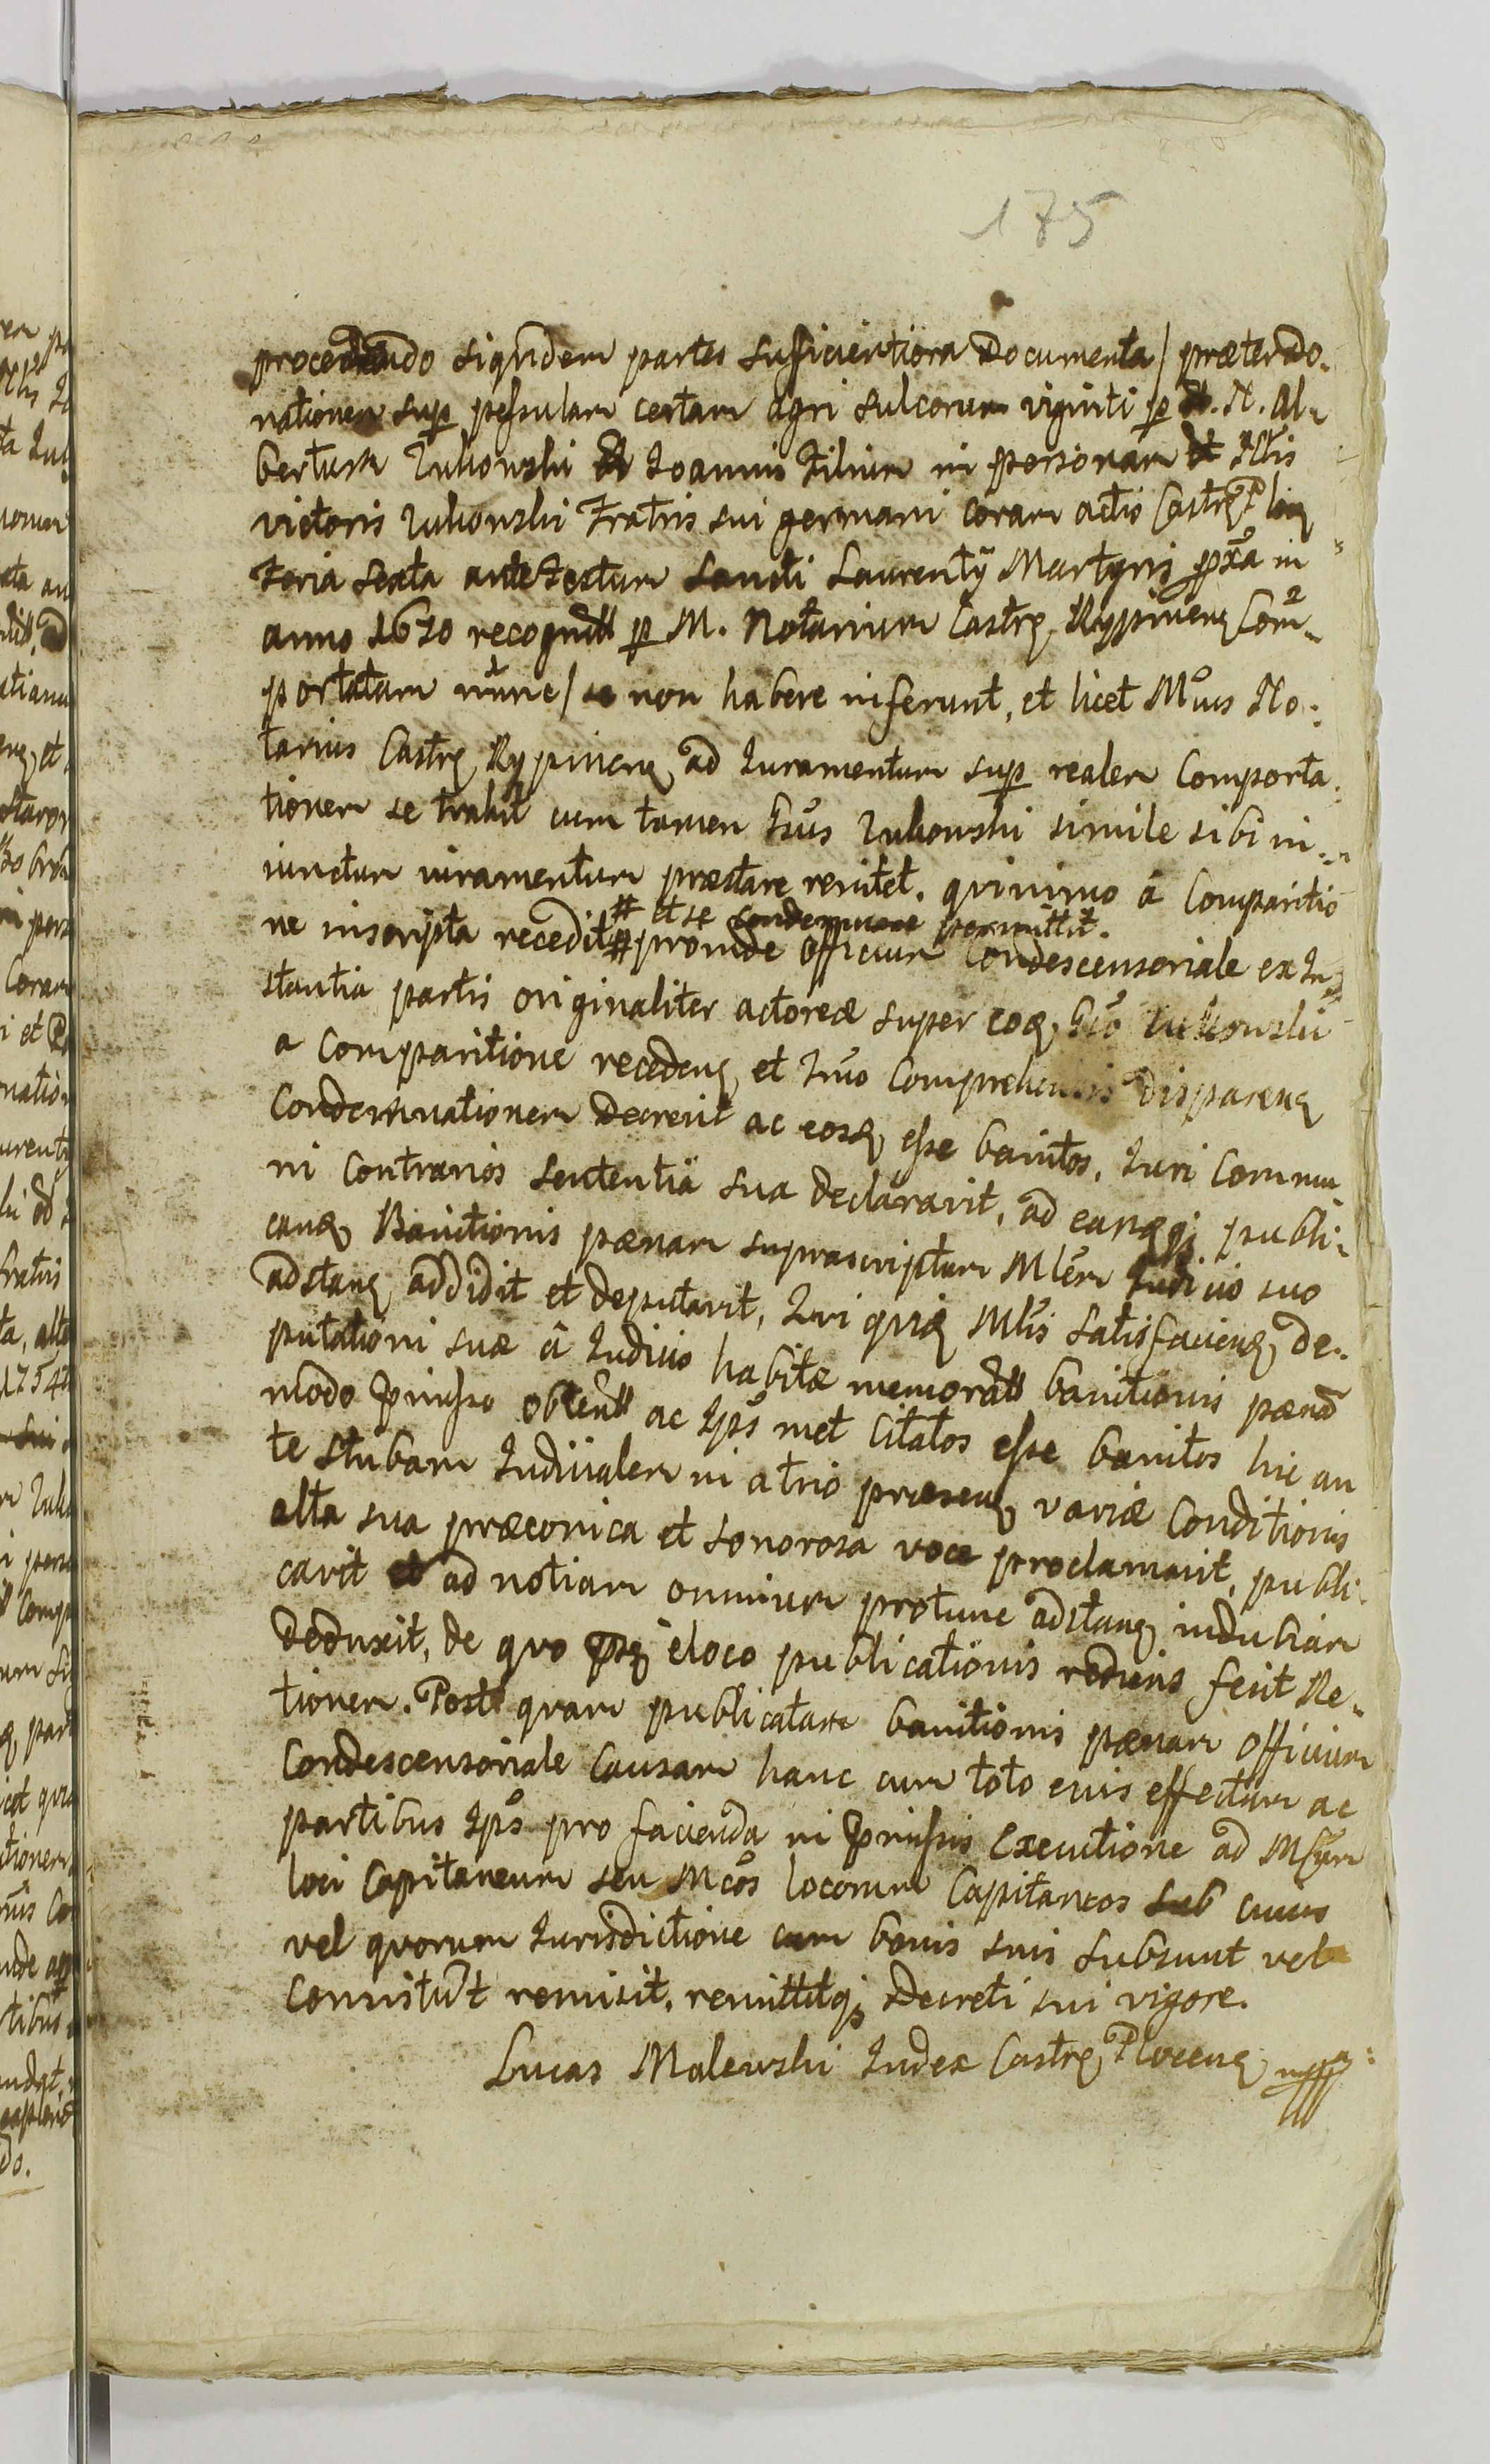 175
procedendo siqdem partes sufficientiora Documenta / præter do-
nationem sup peßulam certam agri sulcorum viginti p N. Al-
bertum Zukowski Joannis Filium in personam Nlis
victoris Zukowski Fratris sui germani coram actis Castr
Feria sexta ante Festum Sancti Laurentÿ Martyris pxa in
anno 1670 recognitt p M. Notarium Castrg Rypineng Com-
portatam nunc / se non habere inferunt, et licet Mcus No-
tarius Castrg Rypineng ad Juramentum sup realem Comporta-
tionem se trahit cum tamen Gsus Zukowski simile sibi in-
iunctum iuramentum præstare renitet. quinimo â Comparitio
ne inscripta recedit # # et se Condemnare permittit.
proinde Officium Condescensoriale ex In-
stantia partis originaliter actoreæ super eoq Gso Zukowski
a Comparitione recedeng et Comprehensis dispareng
Condemnationem decrevit ac eosq eße banitos, Juri Commu-
ni Contrarios Sententiâ sua declaravit, ad eamqg publi-
cang Banitionis pænam suprascriptum Mlem Judicio suo
adstang addidit et deputavit, Qui quiq Mlis satisfacieng de-
putationi suæ â Judicio habitæ memoratt banitionis pænâ
modo præmißo obtentt ac Ipsos met Citatos eße banitos hic an
te stubam Judicialem in atrio præseng variæ Conditionis
alta sua præconica et sonorosa voce proclamavit, publi-
cavit ad notiam omnium protunc adstang indubiam
deduxit, de quo eloco publicationis rediens fecit Re-
tionem. Post quam publicatam banitionis pænam Officium
Condescensoriale Causam hanc cum toto eius effectum ac
partibus Ipsis pro facienda in præmißis Executione ad Mcum
loci Capitaneum seu Mcos locorum Capitaneos sub cuius
vel quorum Jurisdictione cum bonis suis subsunt vel
Consistut remisit, remittitqg Decreti sui vigore.
Lucas Malewski Judex Castrg Ploceng mpp